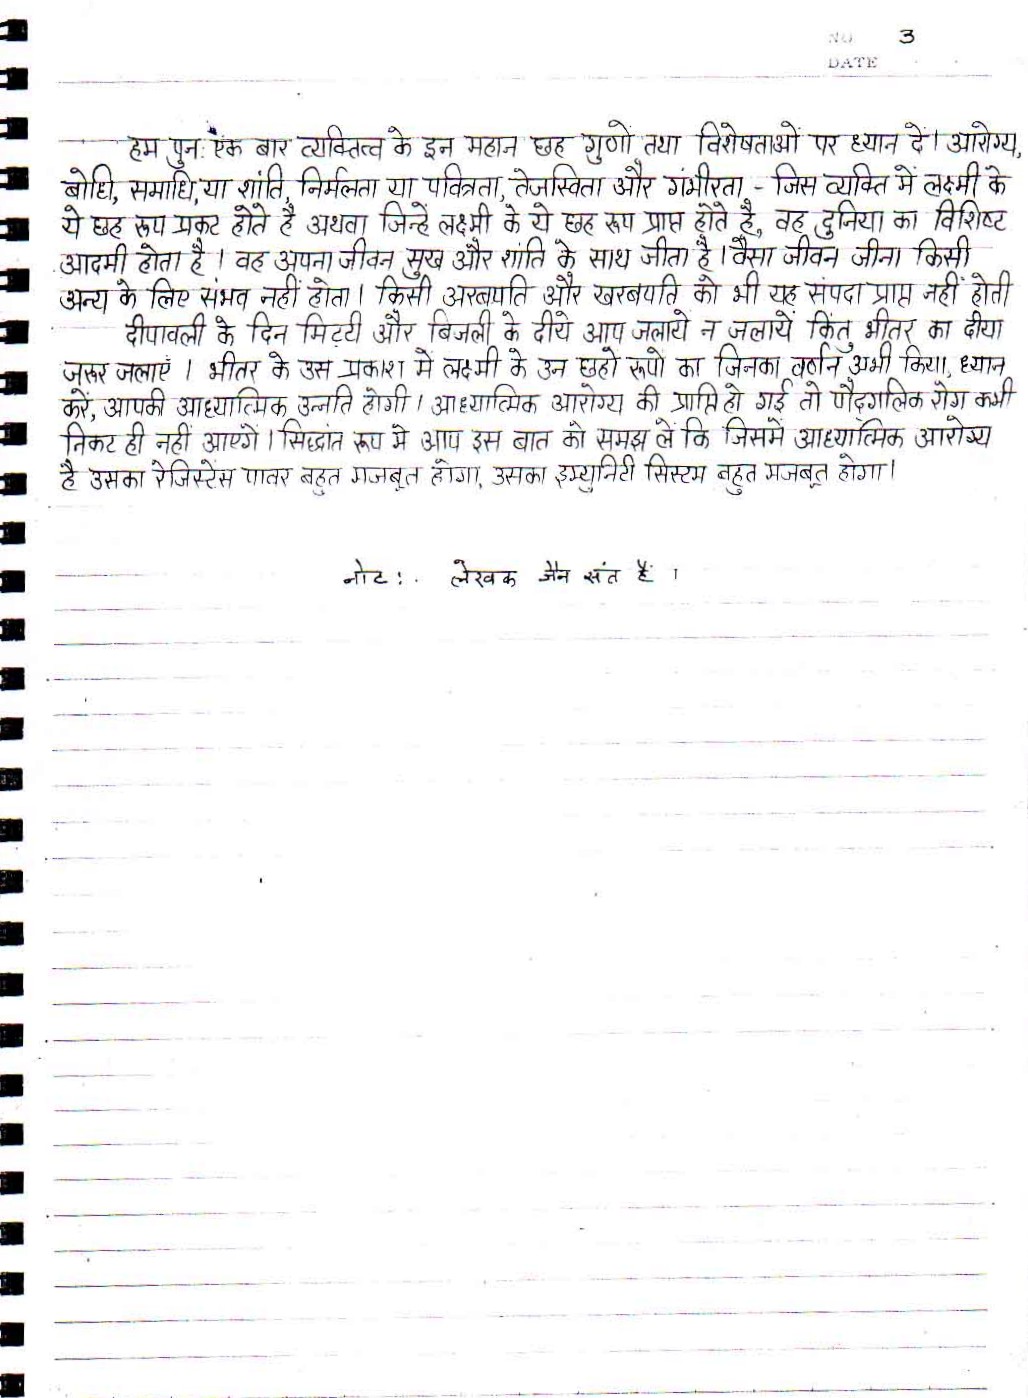 NO 3
DATE
हम पुन: एक बार व्यक्तित्व के इन महान छह गुणों तथा विशेषताओं पर ध्यान दें। आरोग्य,
बोधि, समाधि, या शांति, निर्मलता या पवित्रता, तेजस्विता और गंभीरता - जिस व्यक्ति में लक्ष्मी के
ये छह रूप प्रकट होते है अथवा जिन्हें लक्ष्मी के ये छह रूप प्राप्त होते है, वह दुनिया का विशिष्ट
आदमी होता है। वह अपना जीवन सुख और शांति के साथ जीता है। वैसा जीवन जीना किसी
अन्य के लिए संभव नहीं होता। किसी अरबपति और खरबपति को भी यह संपदा प्राप्त नहीं होती
दीपावली के दिन मिट्टी और बिजली के दीये आप जलाये न जलायें किंतु भीतर का दीया
जरूर जलाएं। भीतर के उस प्रकाश में लक्ष्मी के उन छहों रूपों का जिनका वर्णन अभी किया, ध्यान
करें, आपकी आध्यात्मिक उन्नति होगी। आध्यात्मिक आरोग्य की प्राप्ति हो गई तो पौद्गलिक रोग कभी
निकट ही नहीं आएंगे। सिद्धांत रूप मे आप इस बात को समझ लें कि जिसमें आध्यात्मिक आरोग्य
है उसका रेजिस्टेंस पावर बहुत मजबूत होगा, उसका इम्युनिटी सिस्टम बहुत मजबूत होगा।
नोट:. लेखक जैन संत हैं।